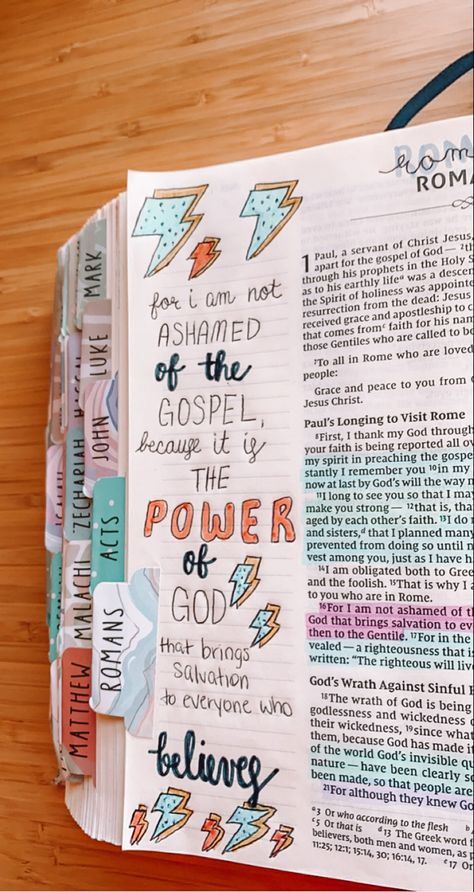 MARK
LUKE
JOHN
ACTS
ROMANS
ZECHARIAH
MALACHI
MATTHEW
for i am not
ASHAMED
of the
GOSPEL,
because it is
THE
POWER
of
GOD
that brings
salvation
to everyone who
believes
rom
ROMA
1 Paul, a servant of Christ Jesus,
apart for the gospel of God —
through his prophets in the Holy S
as to his earthly life was a descen
the Spirit of holiness was appointe
resurrection from the dead: Jesus
received grace and apostleship to c
that comes from faith for his nam
those Gentiles who are called to be
7To all in Rome who are loved
people:
Grace and peace to you from
Jesus Christ.
Paul's Longing to Visit Rome
8First, I thank my God through
your faith is being reported all ov
my spirit in preaching the gospe
stantly I remember you 10in my
now at last by God's will the way m
11I long to see you so that I ma
make you strong — 12that is, tha
aged by each other's faith. 13I do
and sisters,d that I planned many
prevented from doing so until n
vest among you, just as I have h
14I am obligated both to Gree
and the foolish. 15That is why I a
to you who are in Rome.
16For I am not ashamed of th
God that brings salvation to ev
then to the Gentile. 17For in the
vealed — a righteousness that
written: "The righteous will live
God's Wrath Against Sinful
18The wrath of God is being
godlessness and wickedness
their wickedness, 19since what
them, because God has made it
of the world God's invisible qu
nature — have been clearly se
been made, so that people are
21For although they knew Go
a3 Or who according to the flesh
c5 Or that is d13 The Greek word
believers, both men and women, as p
11:25; 12:1; 15:14, 30; 16:14, 17. e17 Or